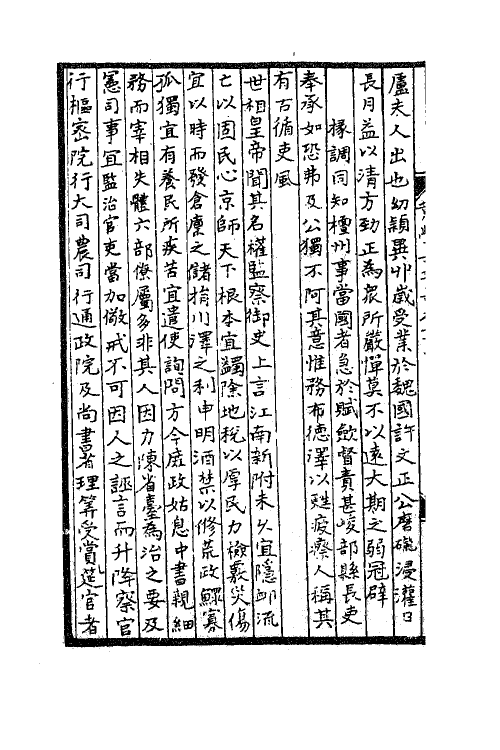 盧夫人出也幼穎異丱歲受業於魏國許文正公磨礲浸灌日
長月益以清方勁正為衆所嚴憚莫不以遠大期之弱冠辟
掾調同知檀州事當國者急於賦斂督責甚峻部縣長吏
奉承如恐弗及公獨不阿其意惟務布德澤以甦疲瘵人稱其
有古循吏風
世祖皇帝聞其名擢監察御史上言江南新附未久宜隱卹流
亡以固民心京師天下根本宜蠲除地稅以厚民力檢覈災傷
宜以時而發倉廩之儲捐川澤之利申明酒禁以修荒政鰥寡
孤獨宜有養民所疾苦宜遣使詢問方今庶政姑息中書親細
務而宰相失體六部僚屬多非其人因力陳省臺為治之要及
憲司事宜監治官吏當加儆戒不可因人之誣言而升降察官
行樞密院行大司農司行通政院及尚書省理筭受賞筵官者